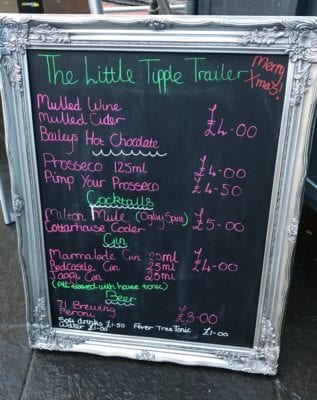 The Little Tipple Trailer
Merry Xmas!
Mulled Wine
Mulled Cider
Baileys Hot Chocolate
£4.00
Prosseco 125ml £4.00
Pimp Your Prosseco £4.50
Cocktails
Milton Mule (Ogilvy Spirit)
Cottarhouse Cooler
£5.00
Gin
Marmalade Gin 25ml
Redcastle Gin 25ml
Jappa Gin 25ml
£4.00
(All served with house tonic)
Beer
71 Brewing
Peroni
£3.00
Soft drinks £1.50 Fever Tree Tonic £1.00
Water £1.00